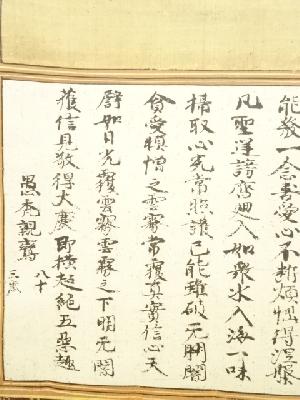 能發一念喜愛心不斷煩惱得涅槃
凡聖逆謗齊廻入如衆水入海一味
攝取心光常照護已能雖破无明闇
貪愛瞋憎之雲霧常覆真實信心天
譬如日光覆雲霧雲霧之下明无闇
獲信見敬得大慶即横超絶五惡趣
愚禿親鸞
八十
三歳